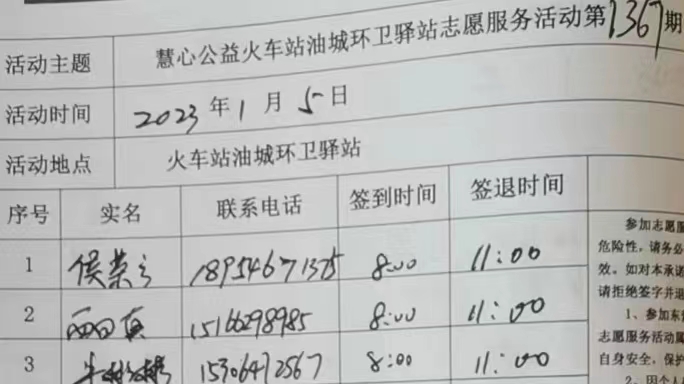 活动主题 慧心公益火车站油城环卫驿站志愿服务活动第1367期
活动时间 2023年1月5日
活动地点 火车站油城环卫驿站
序号 实名 联系电话 签到时间 签退时间
1 侯荣 18954671375 8:00 11:00
2 15166298985 8:00 11:00
3 15306472567 8:00 11:00
参加志愿服
危险性,请务必
效。如对本承诺
请拒绝签字并退
1、参加东
志愿服务活动属
自身安全,保护
2、因个人